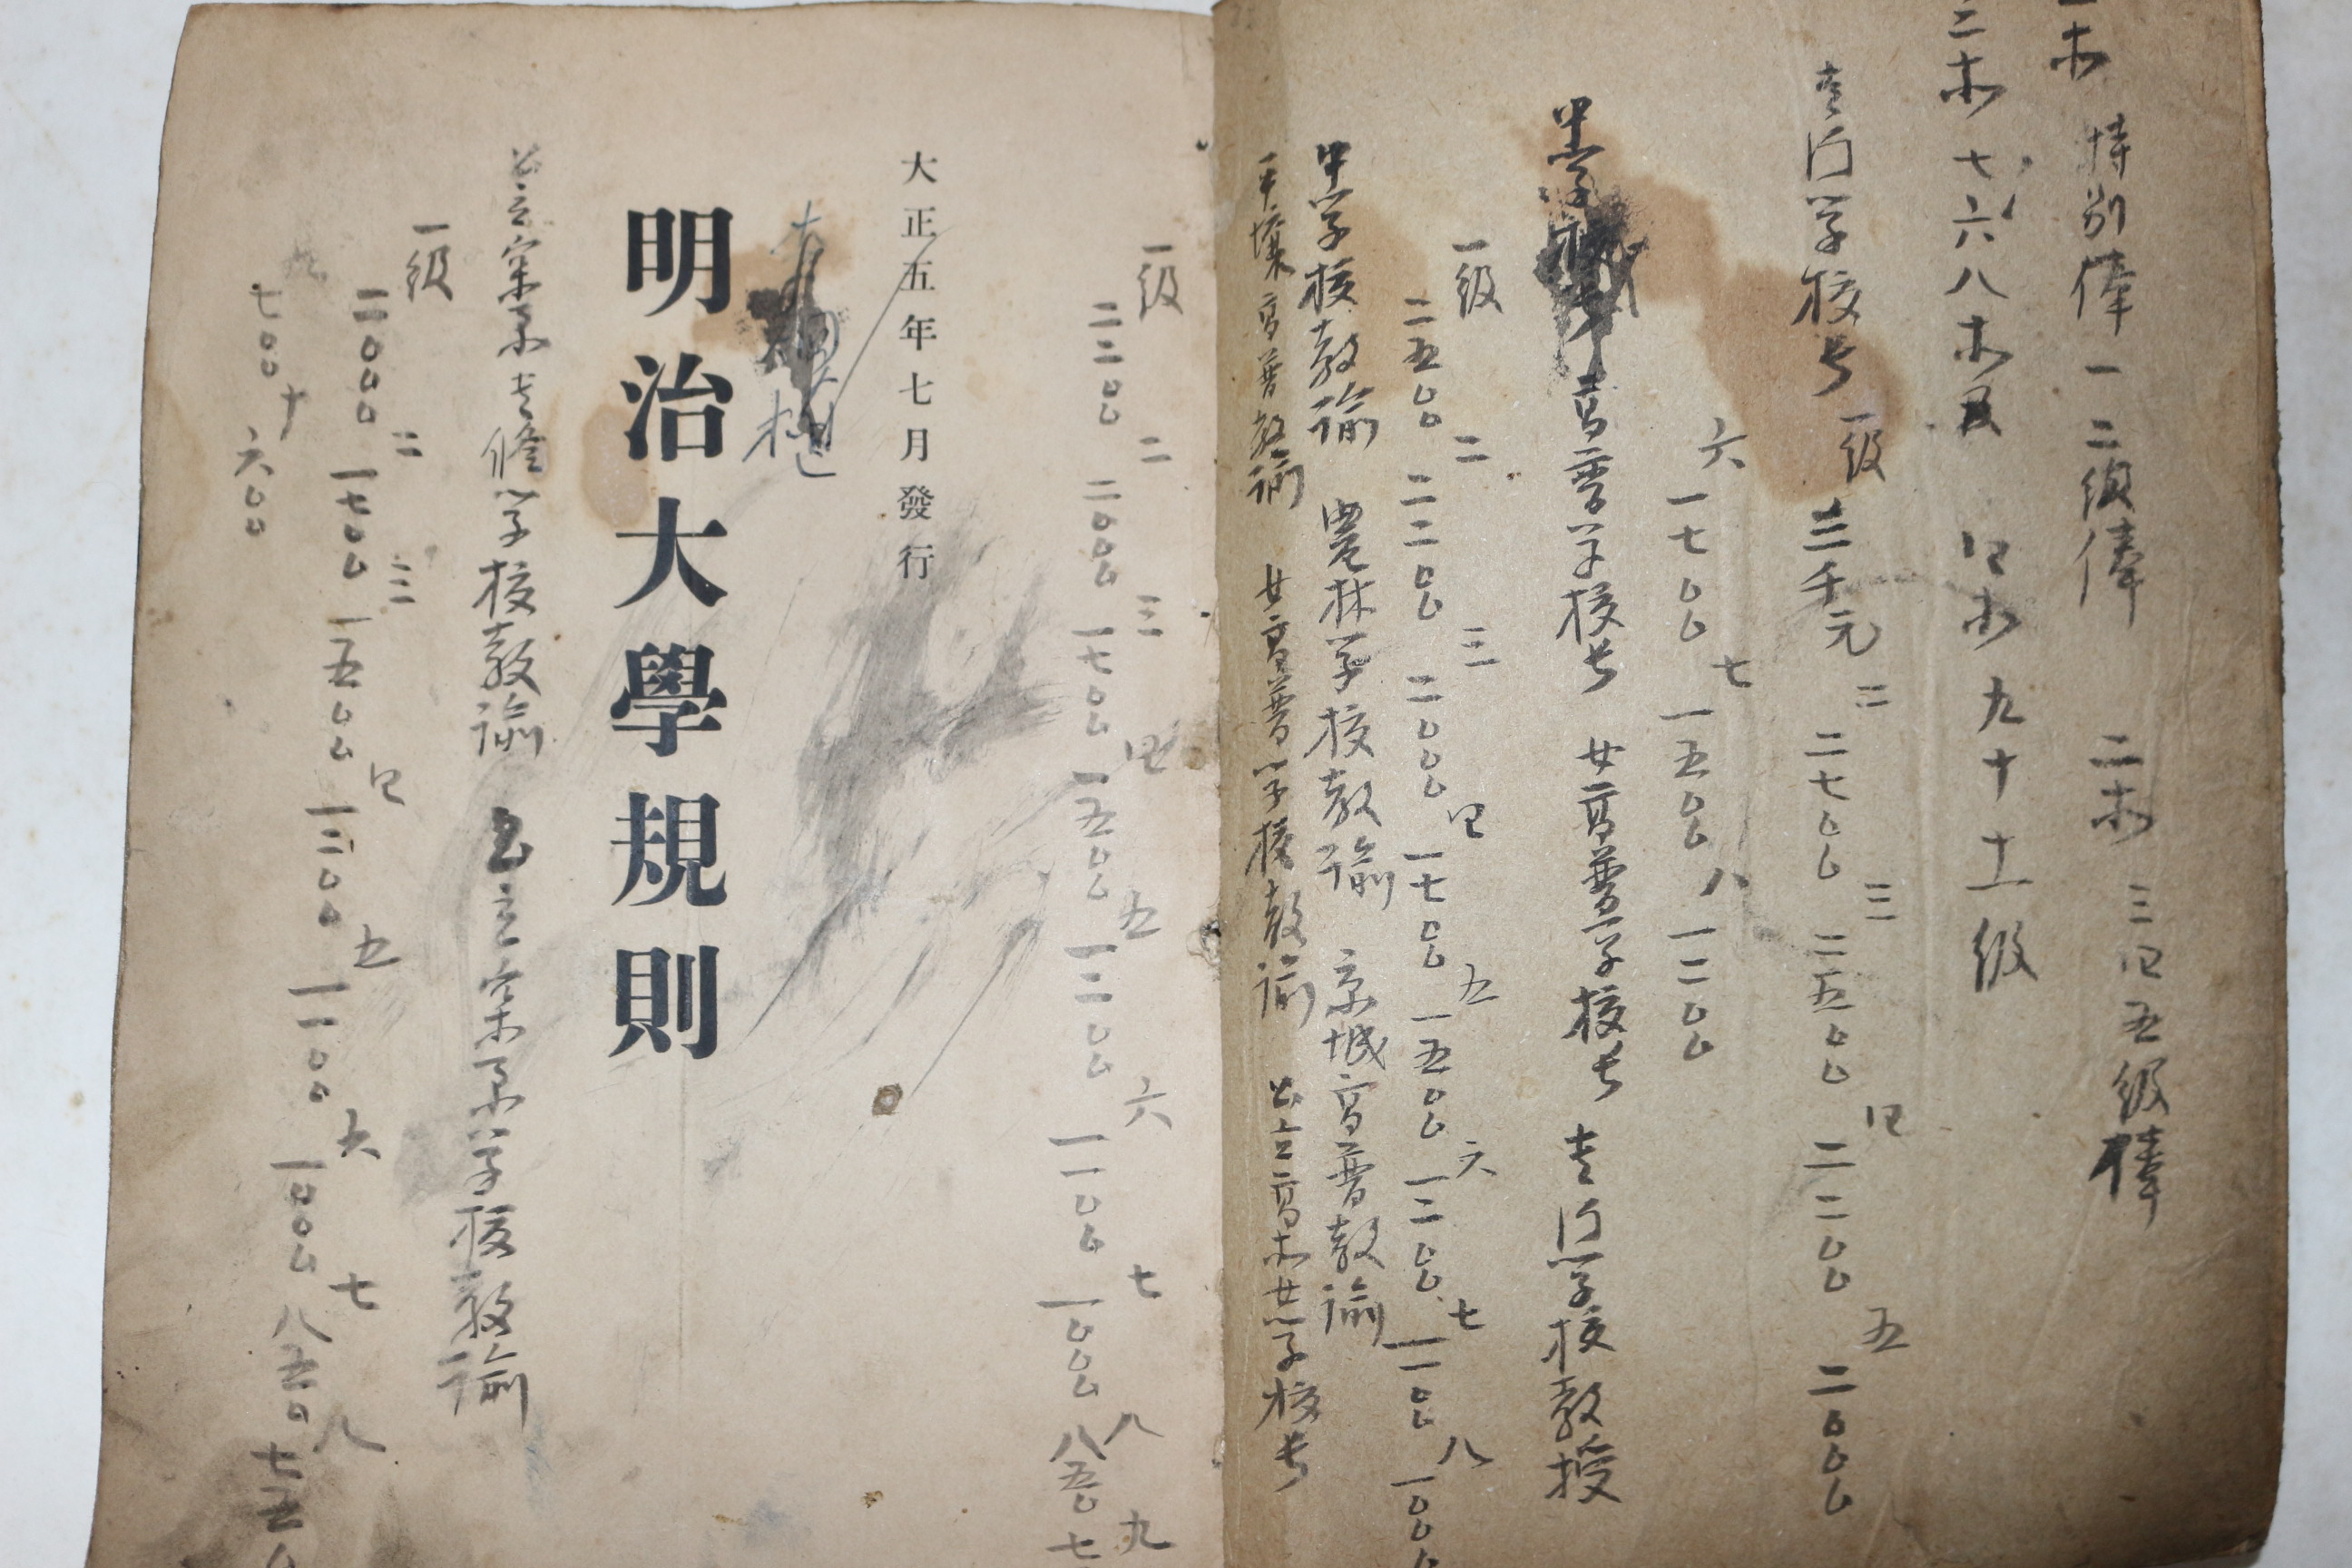 特別俸 一 二級俸 二木 三四五級俸
二木 七六八木 四木 九十十一級
専門学校長 一級 三千元 二 二七〇〇 三 二五〇〇 四 二二〇〇 五 二〇〇〇
六 一七〇〇 七 一五〇〇 八 一二〇〇
高普学校長 女高普学校長 専門学校教授
一級 二五〇〇 二 二二〇〇 三 二〇〇〇 四 一七〇〇 五 一五〇〇 六 一三〇〇 七 一一〇〇 八 一〇〇〇
中学校教諭 農林学校教諭 京城高普教諭
平壌高普教諭 女高普学校教諭 公立高木女学校長
一級 二三〇〇 二 二〇〇〇 三 一七〇〇 四 一五〇〇 五 一三〇〇 六 一一〇〇 七 一〇〇〇 八 八五〇 九 七
大正五年七月發行
明治大學規則
公立実業専修学校教諭 公立実業学校教諭
一級 二〇〇〇 二 一七〇〇 三 一五〇〇 四 一三〇〇 五 一一〇〇 六 一〇〇〇 七 八五〇 八 七五〇
九 七〇〇 十 六〇〇